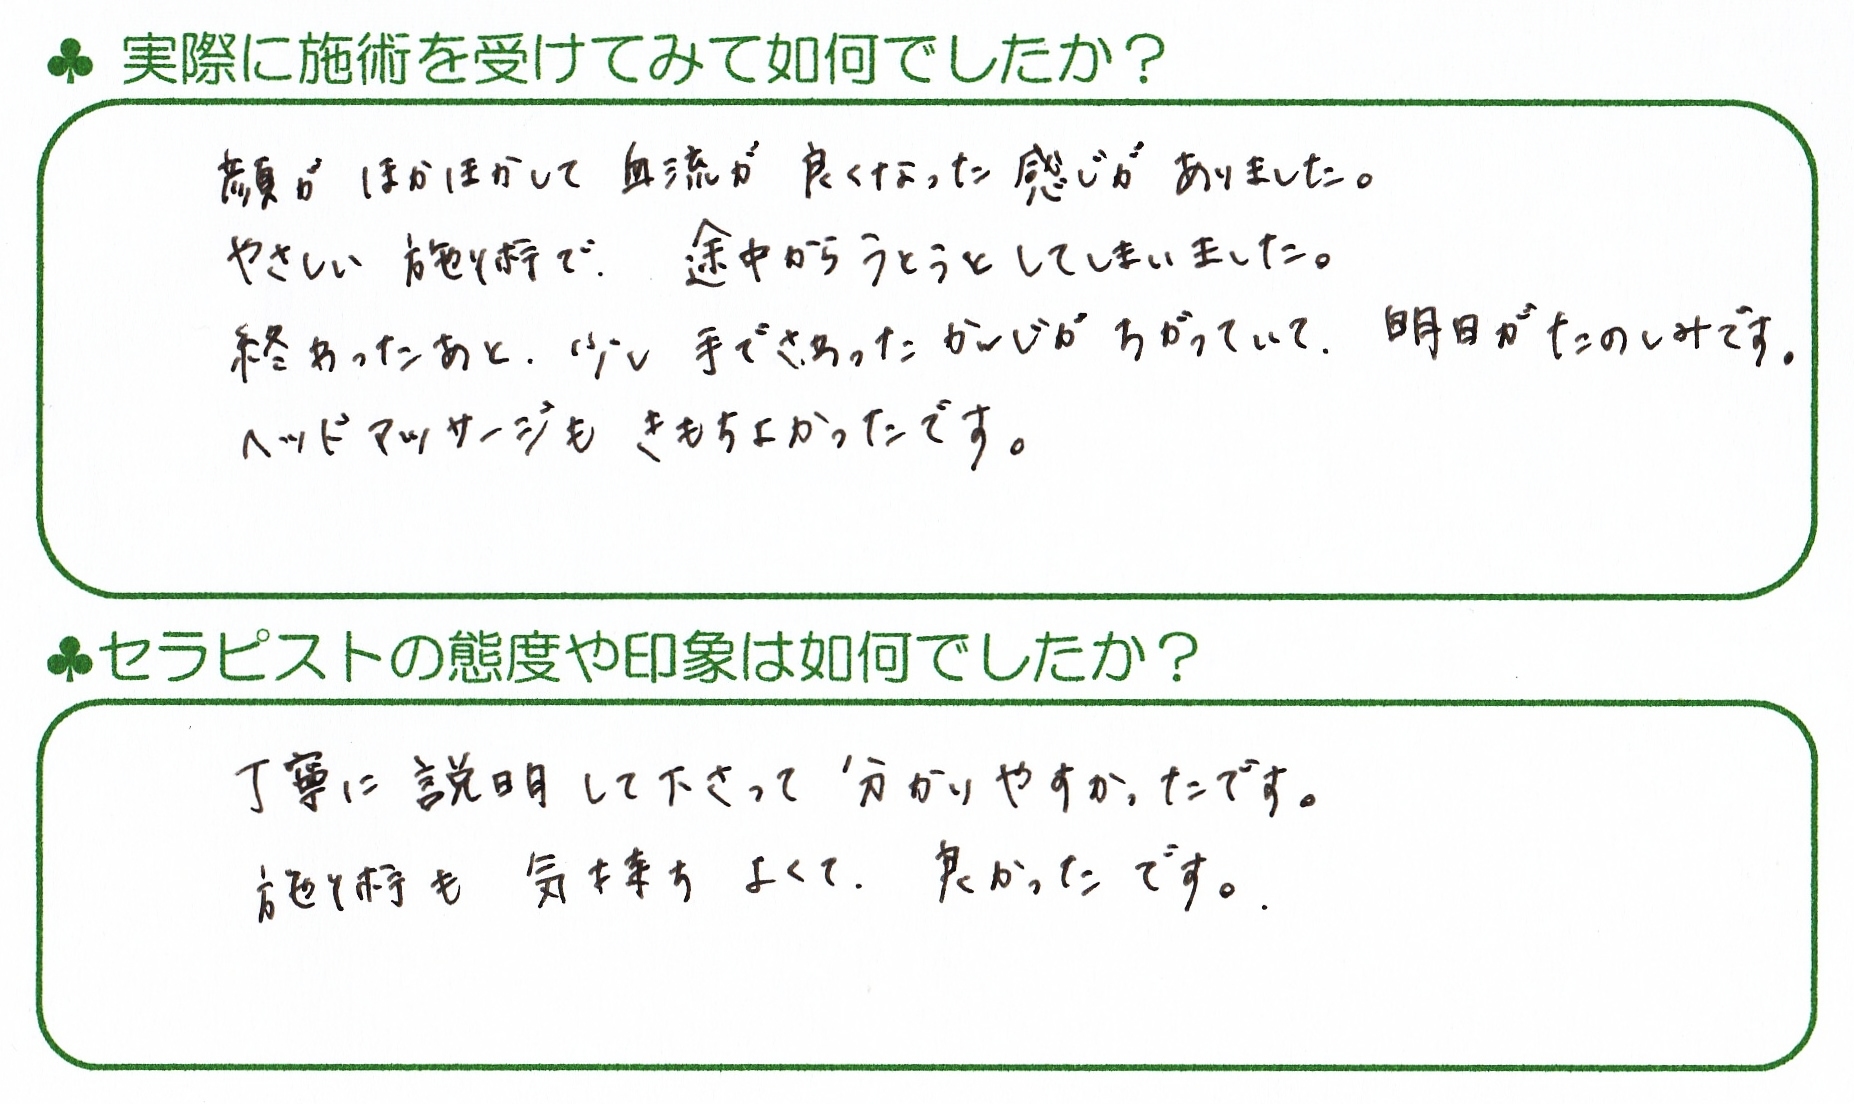 ♣ 実際に施術を受けてみて如何でしたか?
顔が ほかほかして 血流が 良くなった 感じが ありました。
やさしい 施術で、 途中から うとうと してしまいました。
終わったあと、少し 手でさわった かんじが ちがっていて、 明日が たのしみです。
ヘッドマッサージも きもちよかったです。
♣セラピストの態度や印象は如何でしたか?
丁寧に 説明して下さって 分かりやすかったです。
施術も 気持ち よくて、 良かった です。